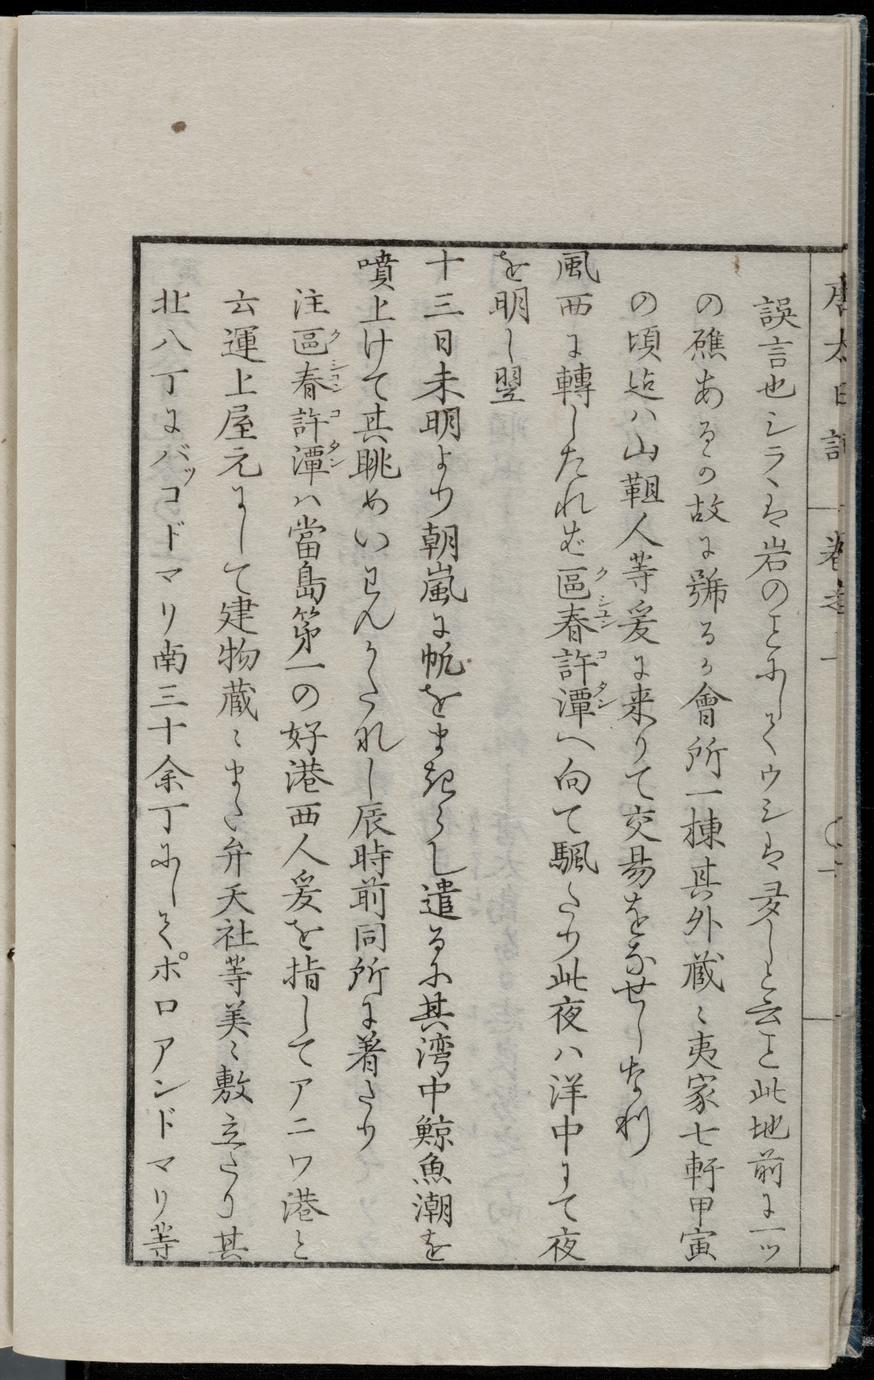 唐太日記 卷之上
誤言也シラヽは岩のことにしてウシは多しと云こと此地前に一ツ
の礁あるの故に號るか會所一棟其外蔵々夷家七軒甲寅
の頃迄ハ山靼人等爰に来りて交易をなせしなり
風西に轉したれば區春許潭へ向て颿たり此夜ハ洋中にて夜
を明し翌
十三日未明より朝嵐に帆をまきらし遣るに其湾中鯨魚潮を
噴上けて其眺めいわんかたなし辰時前同所に着たり
注區春許潭ハ當島第一の好港西人爰を指してアニワ港と
云運上屋元にして建物蔵々また弁天社等美々敷立たり其
北八丁にバッコドマリ南三十余丁にしてポロアンドマリ等